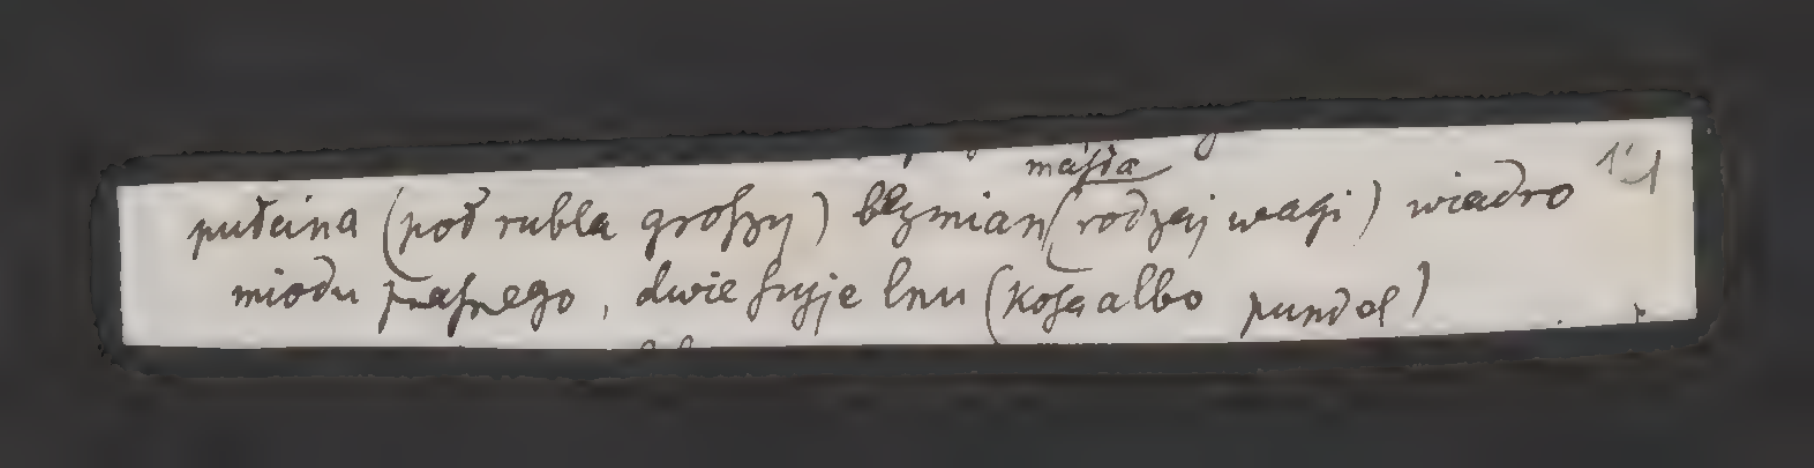 masła
putcina (poł rubla groszy) bezmian (rodzaj wagi) wiadro
miodu praśnego, dwie szyje lnu (kosa albo pundel)